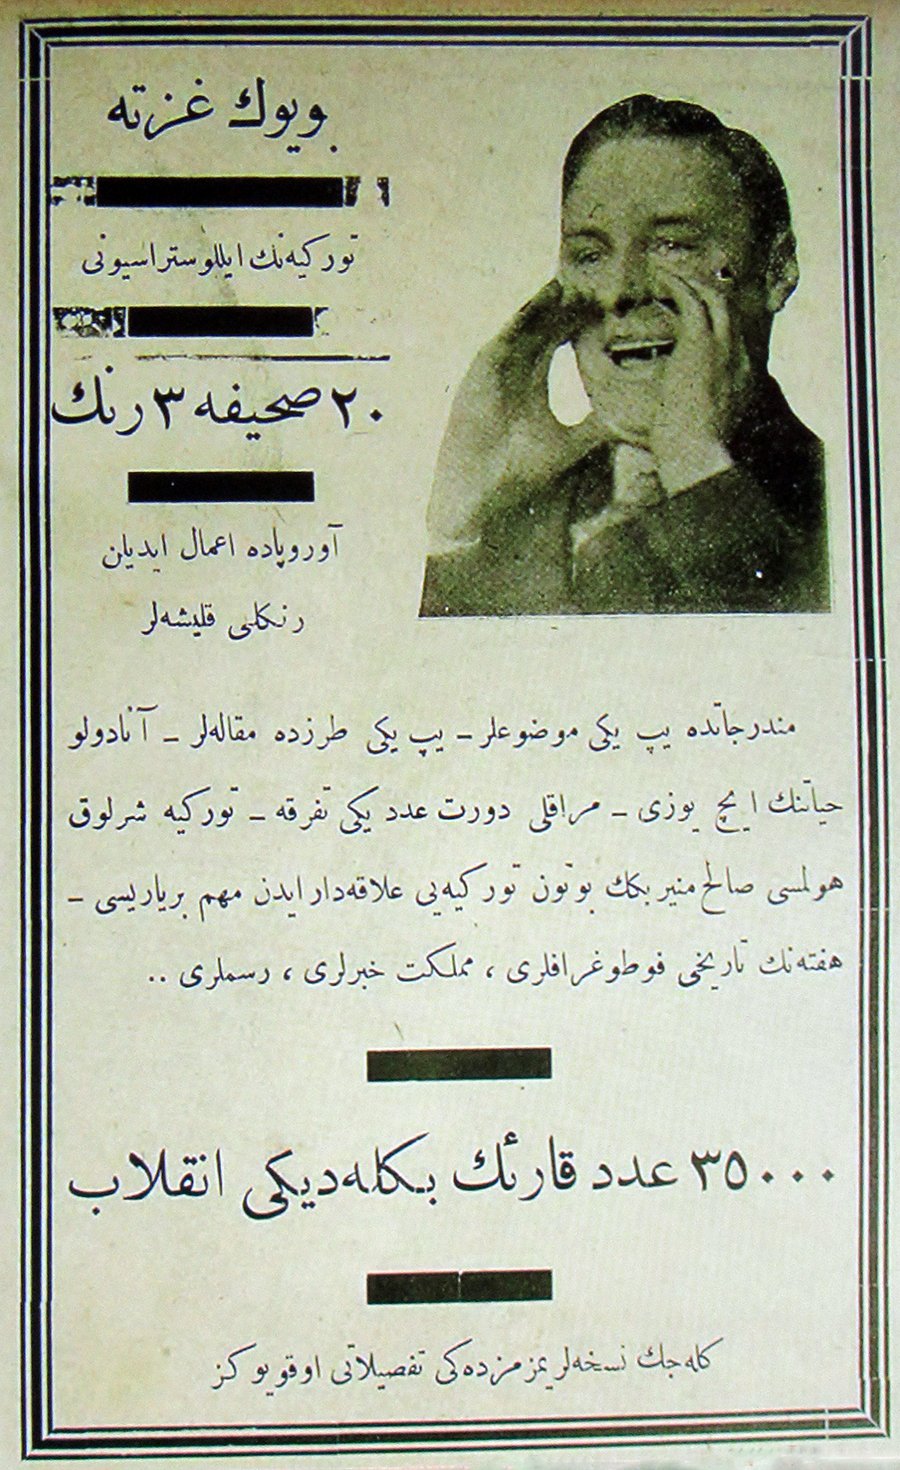 بویوك غزته
توركیه‌نك ایللوستراسیونی
۲۰ صحیفه ۳ رنك
آوروپاده اعمال ایدیلن
رنكلی قلیشه‌لر
مندرجاتنده یپ یكی موضوعلر ـ یپ یكی طرزده مقاله‌لر ـ آنادولو
حیاتنك ایچ یوزی ـ مراقلی دورت عدد یكی تفرقه ـ توركیه شرلوق
هولمسی صالح منیر بكك بوتون توركیه‌یی علاقه‌دار ایدن مهم بر یازیسی ـ
هفته‌نك تاریخی فوطوغرافلری ، مملكت خبرلری ، رسملری ..
۳۵۰۰۰ عدد قارئك بكله‌دیكی انقلاب
كله‌جك نسخه‌لریمزده‌كی تفصیلاتی اوقویوكز